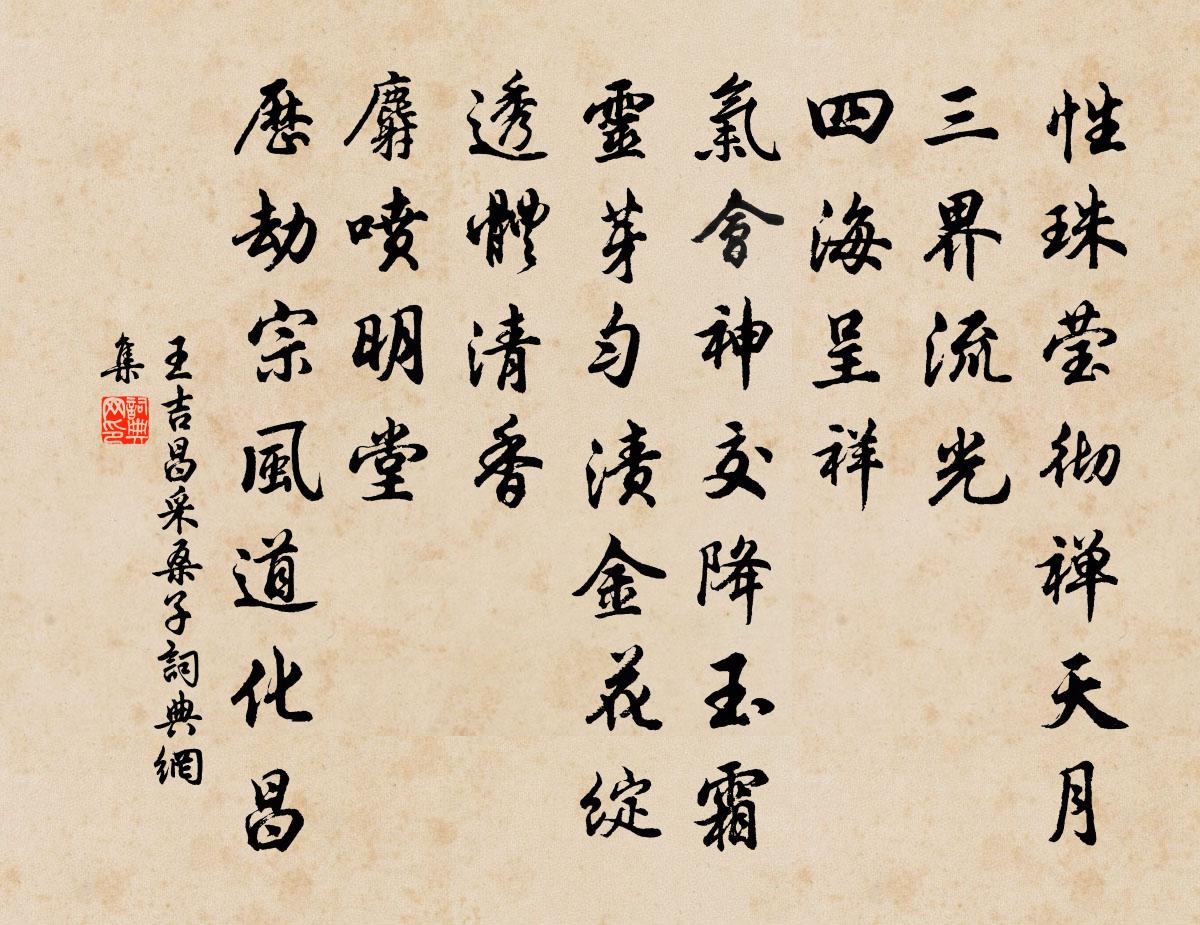 性珠莹彻禅天月
三界流光
四海呈祥
氣會神交降玉霜
靈芽匀漬金花綻
透體清香
麝喷明堂
歷劫宗風道化昌
王吉昌采桑子詞典網
集
詞典网印